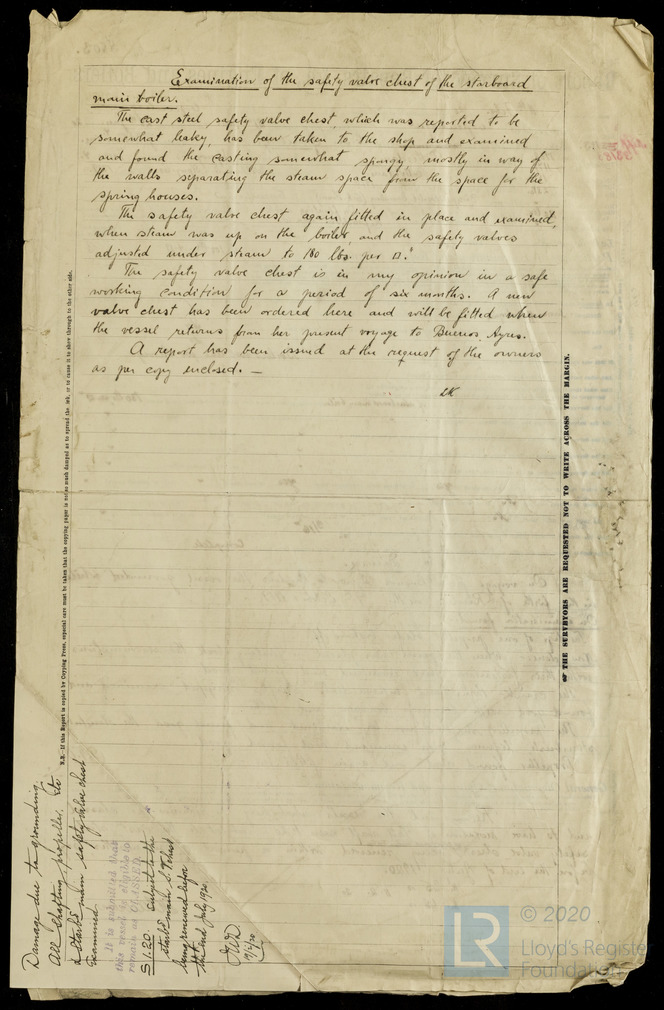 Examination of the safety valve chest of the starboard
main boiler.
The cast steel safety valve chest, which was reported to be
somewhat leaky, has been taken to the shop and examined
and found the casting somewhat spongy, mostly in way of
the walls separating the steam space from the space for the
spring houses.
The safety valve chest again fitted in place and examined,
when steam was up on the boiler and the safety valves
adjusted under steam to 180 lbs. per □."
The safety valve chest is in my opinion in a safe
working condition for a period of six months. A new
valve chest has been ordered here and will be fitted when
the vessel returns from her present voyage to Buenos Ayres.
A report has been issued at the request of the owners
as per copy enclosed. —
LK
N.B.—If this Report is copied by Copying Press, especial care must be taken that the copying paper is not so much damped as to spread the ink, or to cause it to show through to the other side.
THE SURVEYORS ARE REQUESTED NOT TO WRITE ACROSS THE MARGIN.
Damage due to grounding
All shafting, propeller, etc
& Starbd main safety valve chest
examined
It is submitted that
this vessel is eligible to
remain as CLASSED
S 1.20 subject to the
starbd main S.V. chest
being renewed before
the end July 1920
9/2/20
LR
© 2020
Lloyd's Register
Foundation